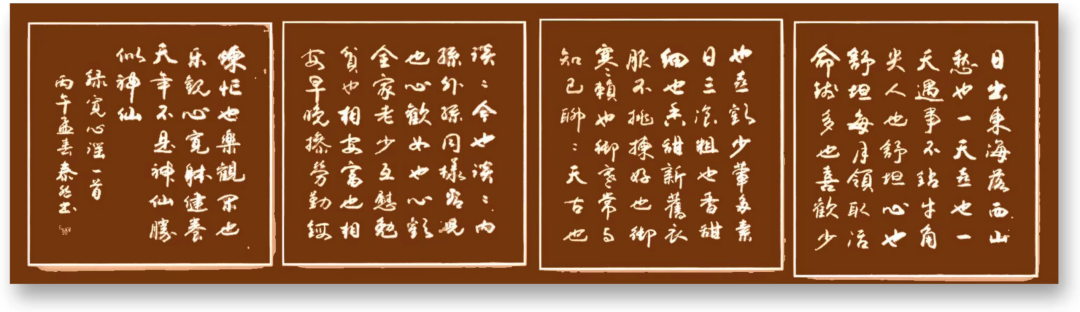 日出東海落西山
愁也一天喜也一
天遇事不鉆牛角
尖人也舒坦心也
舒坦每月領取活
命錢多也喜歡少
也喜歡少葷多素
日三湌粗也香甜
細也香甜新舊衣
服不挑揀好也御
寒賴也御寒常与
知己聊〻天古也
談〻今也談〻内
孫外孫同樣看兒
也心歡女也心歡
全家老少互慰勉
貧也相安富也相
安早晚操勞勤鍛
煉忙也樂觀閑也
乐観心寬躰健養
天年不是神仙勝
似神仙
録寬心謡一首
丙午孟春春書